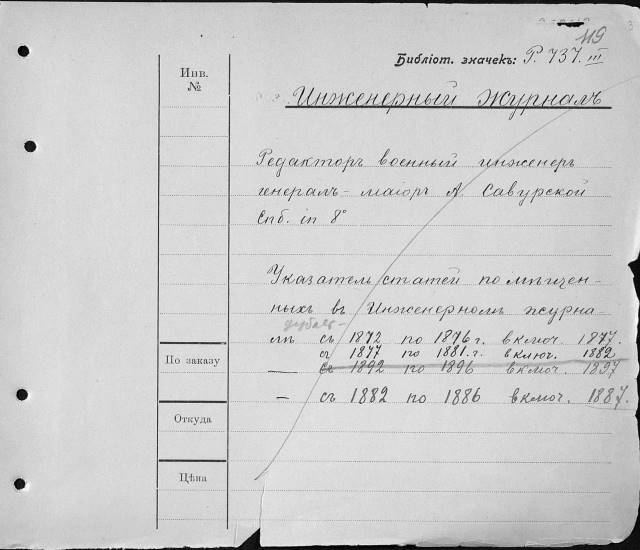 119
Библіот. значекъ: P. 737. III
Инв.
№
Инженерный журналъ
Редакторъ военный инженеръ
генералъ-маіоръ А. Савурской
Спб. in 8°
Указатель статей помѣчен-
ныхъ въ Инженерномъ журна-
лѣ съ 1872 по 1876 г. включ. 1877.
съ 1877 по 1881. г. включ. 1882
По заказу
— съ 1892 по 1896 включ. 1897
— съ 1882 по 1886 включ. 1887.
Откуда
Цѣна